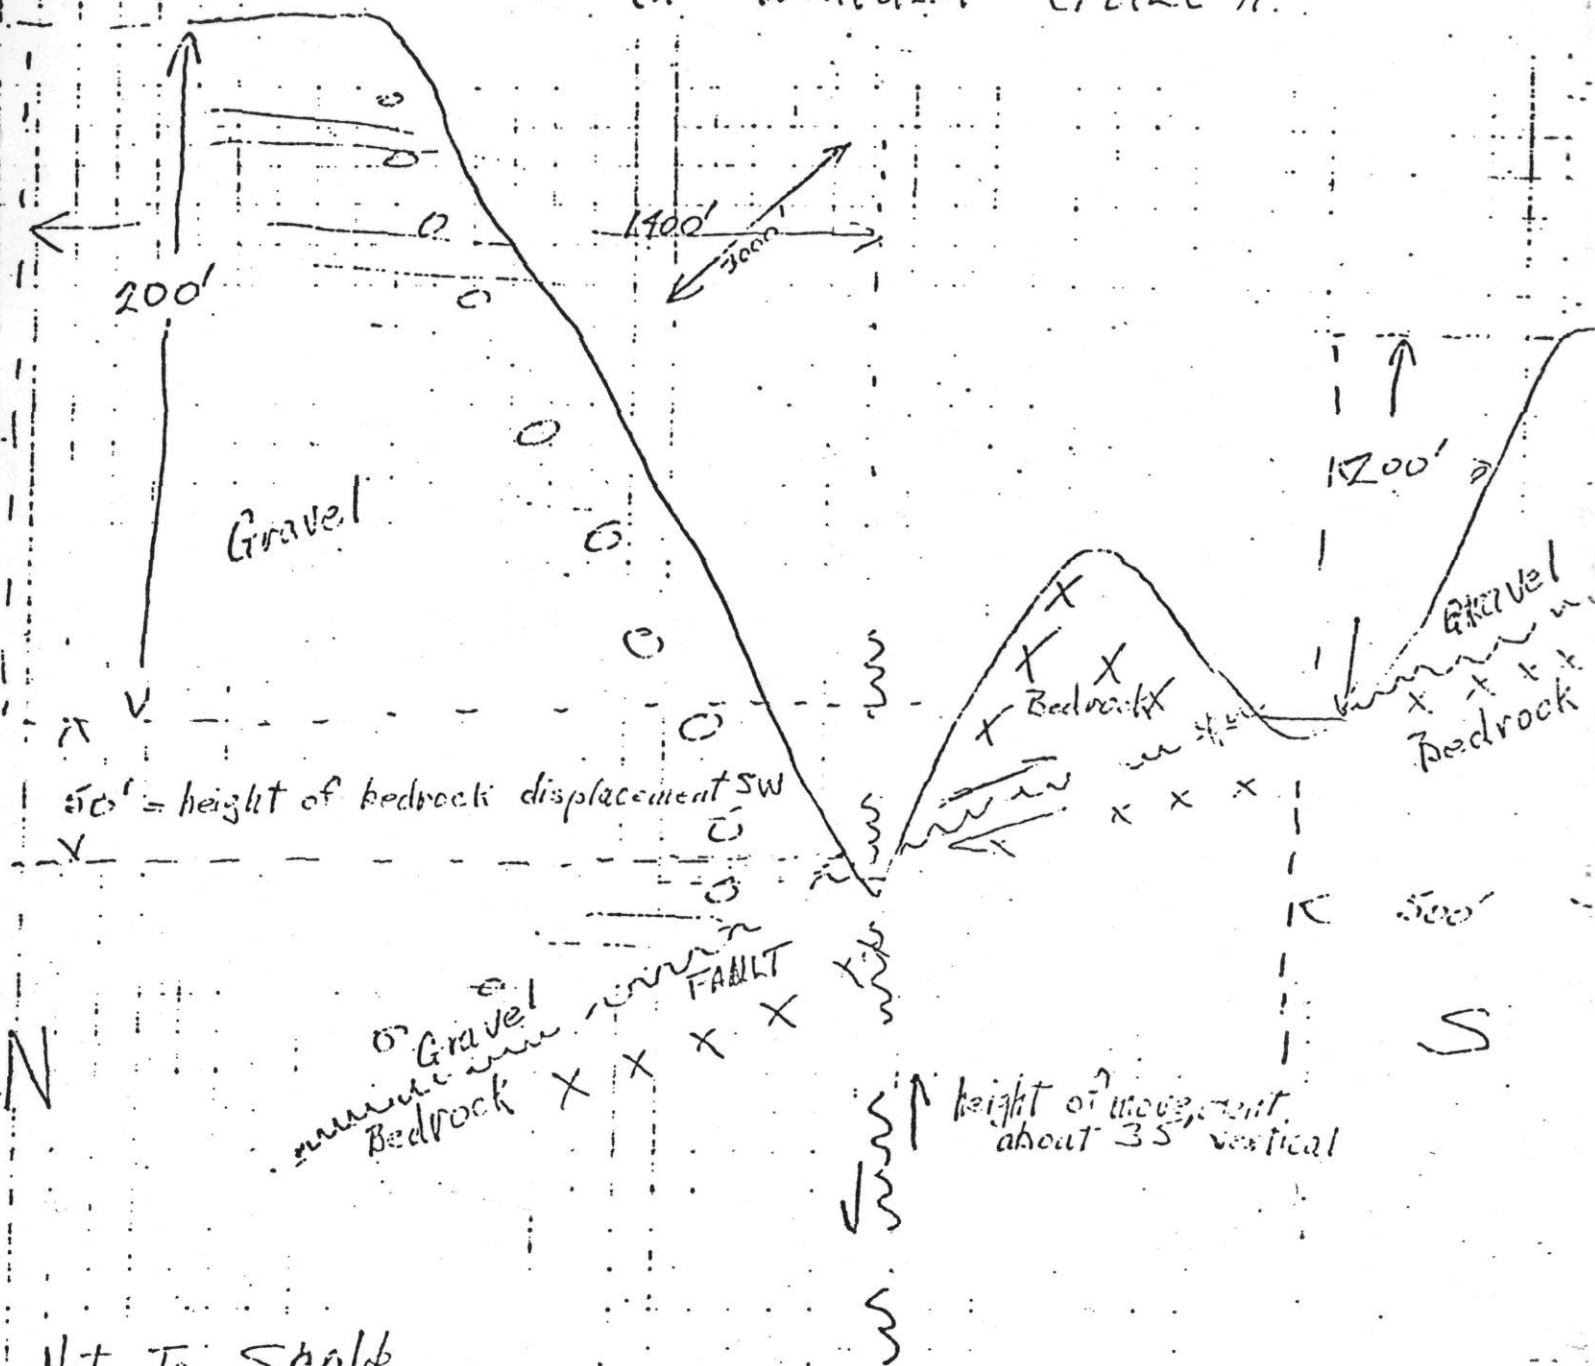 200'
1400'
3000'
200'
Gravel
Gravel
Bedrock
Bedrock
50' = height of bedrock displacement SW
500'
FAULT
Gravel
Bedrock
N
S
height of movement
about 35' vertical
Not To Scale